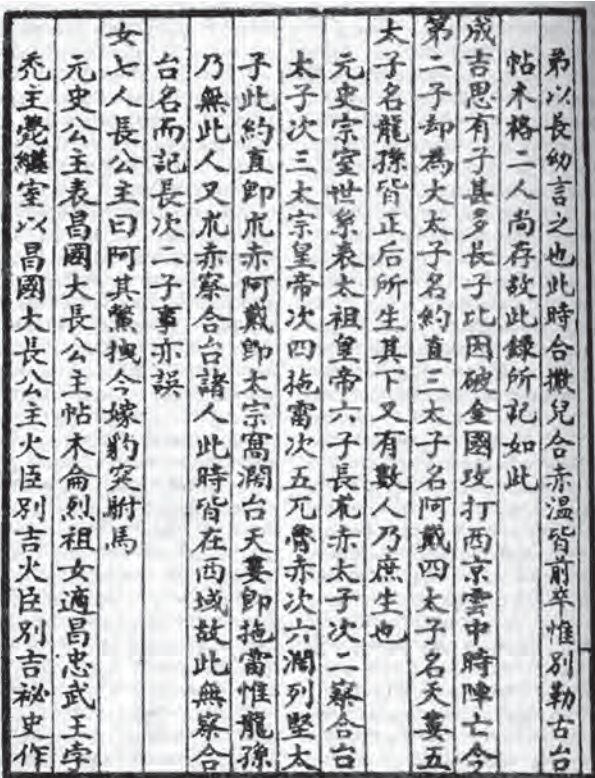 弟以長幼言之也此時合撒兒合赤溫皆前卒惟別勒古台
帖木格二人尚存故此錄所記如此
成吉思有子甚多長子比因破金國攻打西京雲中時陣亡今
第二子却爲大太子名約直三太子名阿戴四太子名天婁五
太子名龍孫皆正后所生其下又有數人乃庶生也
元史宗室世系表太祖皇帝六子長朮赤太子次二察合台
太子次三太宗皇帝次四拖雷次五兀魯赤次六濶列堅太
子此約直即朮赤阿戴即太宗窩濶台天婁即拖雷惟龍孫
乃無此人又朮赤察合台諸人此時皆在西域故此無察合
台名而記長次二子事亦誤
女七人長公主曰阿其鱉拽今嫁豹突駙馬
元史公主表昌國大長公主帖木侖烈祖女適昌忠武王孛
禿主薨繼室以昌國大長公主火臣別吉火臣別吉祕史作